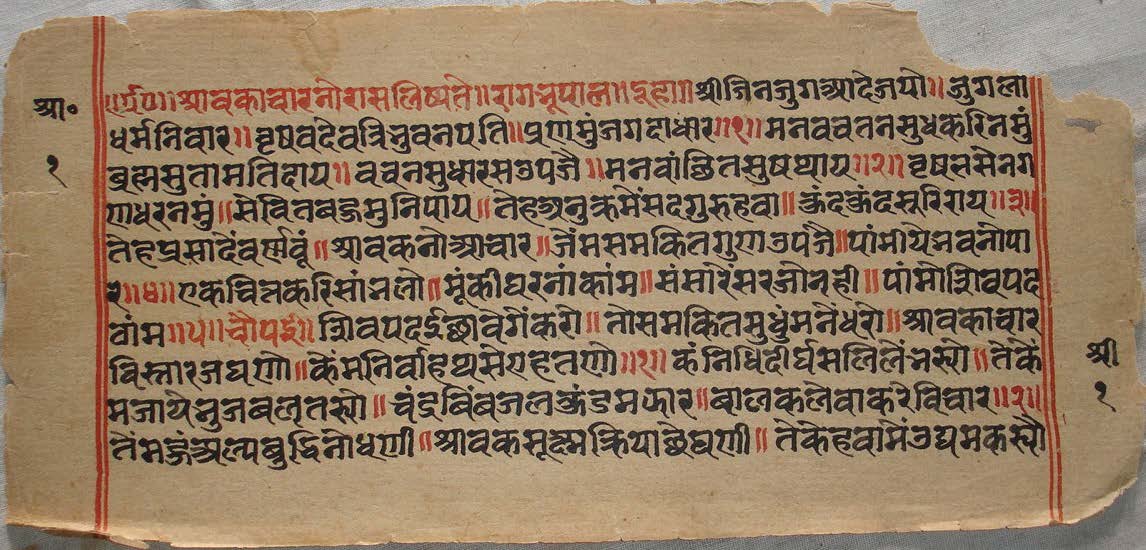 आ॰
१
॥र्द्य०॥श्रावकाचारनोरासलिष्यते॥रागभूपाल॥दूहा॥श्रीजिनजुगआदेजयो॥जुगला
धर्मनिवार॥वृषवदेवत्रिभुवनपति॥प्रणमुंजगदाधार॥१॥मनवचतनसुधकरिनमुं
ब्रह्मसुतामतिदाय॥वचनसुधारसउपजै॥मनवांछितसुषथाय॥२॥वृषलसेनग
णधरनमुं॥सेवितबहुमुनिपाय॥तेहअनुक्रमेंसदगुरुहवा॥कुंदकुंदसूरिराय॥३॥
तेहप्रसादेंवर्णवूं॥श्रावकनोआचार॥जेंमसमकितगुणउपजै॥पांमीयेभवनोपा
र॥४॥एकचित्तकरिसांभलो॥मूंकीघरनांकांम॥संसारेंसरजोनही॥पांमोशिवपद
ठांम॥५॥चौपई॥शिवपदईछावेगेंकरो॥तोसमकितसुधुंमनेंधरो॥श्रावकाचार
विस्तारजघणो॥केंमनिर्वाहथासेएहतणो॥१॥कंनिधिदीर्घसलिलेंभस्यो॥तेकें
मजायेभुजबलतस्यो॥चंद्रबिंबजलकुंडमझार॥बालकलेवाकरेविचार॥२॥
तेंमहुंअल्पबुद्धिनोधणी॥श्रावकसूक्ष्मक्रियाछेघणी॥तेकेहवामेंउद्यमकस्यौ
श्री
१